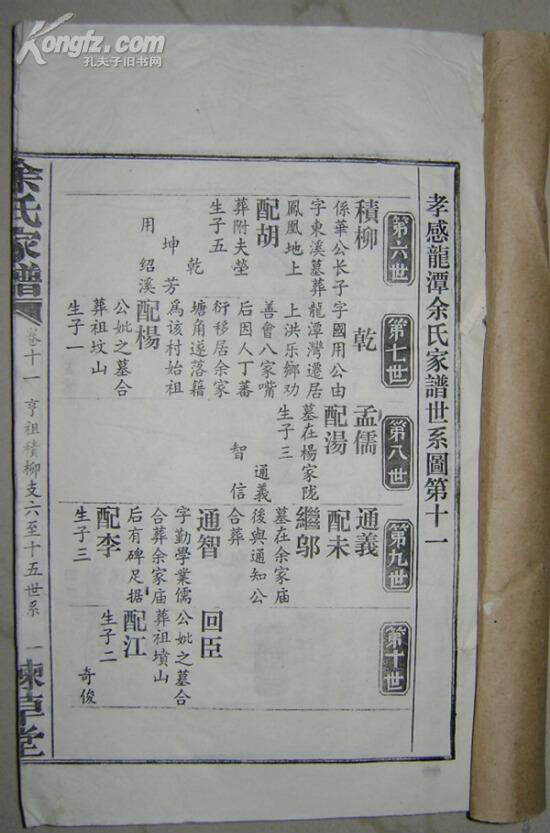 Kongfz.com
孔夫子旧书网
孝感龍潭余氏家譜世系圖第十一
第六世
積柳
係華公長子
字東溪墓葬
鳳凰地上
配胡
葬附夫塋
生子五
乾
坤 芳
用 紹溪
第七世
乾
字國用公由
龍潭灣遷居
上洪乐鄉劝
善會八家嘴
后因人丁蕃
衍移居余家
塘角遂落籍
爲該村始祖
配楊
公妣之墓合
葬祖坟山
生子一
第八世
孟儒
配湯
墓在楊家陇
生子三
通義
智 信
第九世
通義
配未
繼鄔
墓在余家庙
後與通知公
合葬
通智
字勤學業儒
合葬余家庙
后有碑足据
配李
生子三
第十世
回臣
公妣之墓合
葬祖墳山
配江
生子二
奇俊
余氏家譜
卷十一
亨祖積柳支六至十五世系
一
草堂